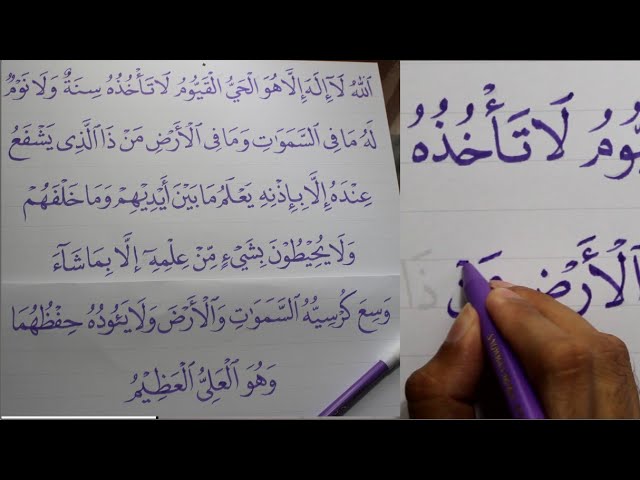 ٱللهُ لَآ إِلَهَ إِلَّا هُوَ ٱلْحَيُّ ٱلْقَيُّومُ لَا تَأْخُذُهُ سِنَةٌ وَلَا نَوْمٌ
لَهُ مَا فِي ٱلسَّمَوَٰتِ وَمَا فِي ٱلْأَرْضِ مَنْ ذَا ٱلَّذِي يَشْفَعُ
عِنْدَهُ إِلَّا بِإِذْنِهِ يَعْلَمُ مَا بَيْنَ أَيْدِيْهِمْ وَمَا خَلْفَهُمْ
وَلَا يُحِيْطُوْنَ بِشَيْءٍ مِّنْ عِلْمِهِ إِلَّا بِمَا شَآءَ
وَسِعَ كُرْسِيُّهُ ٱلسَّمَوَٰتِ وَٱلْأَرْضَ وَلَا يَئُودُهُ حِفْظُهُمَا
وَهُوَ ٱلْعَلِيُّ ٱلْعَظِيْمُ
يُّومُ لَا تَأْخُذُهُ
ٱلْأَرْضِ مَنْ ذَا